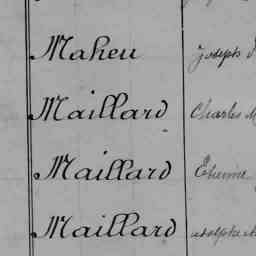 Maheu Joseph
Maillard Charles M
Maillard Etienne
Maillard Adolphe